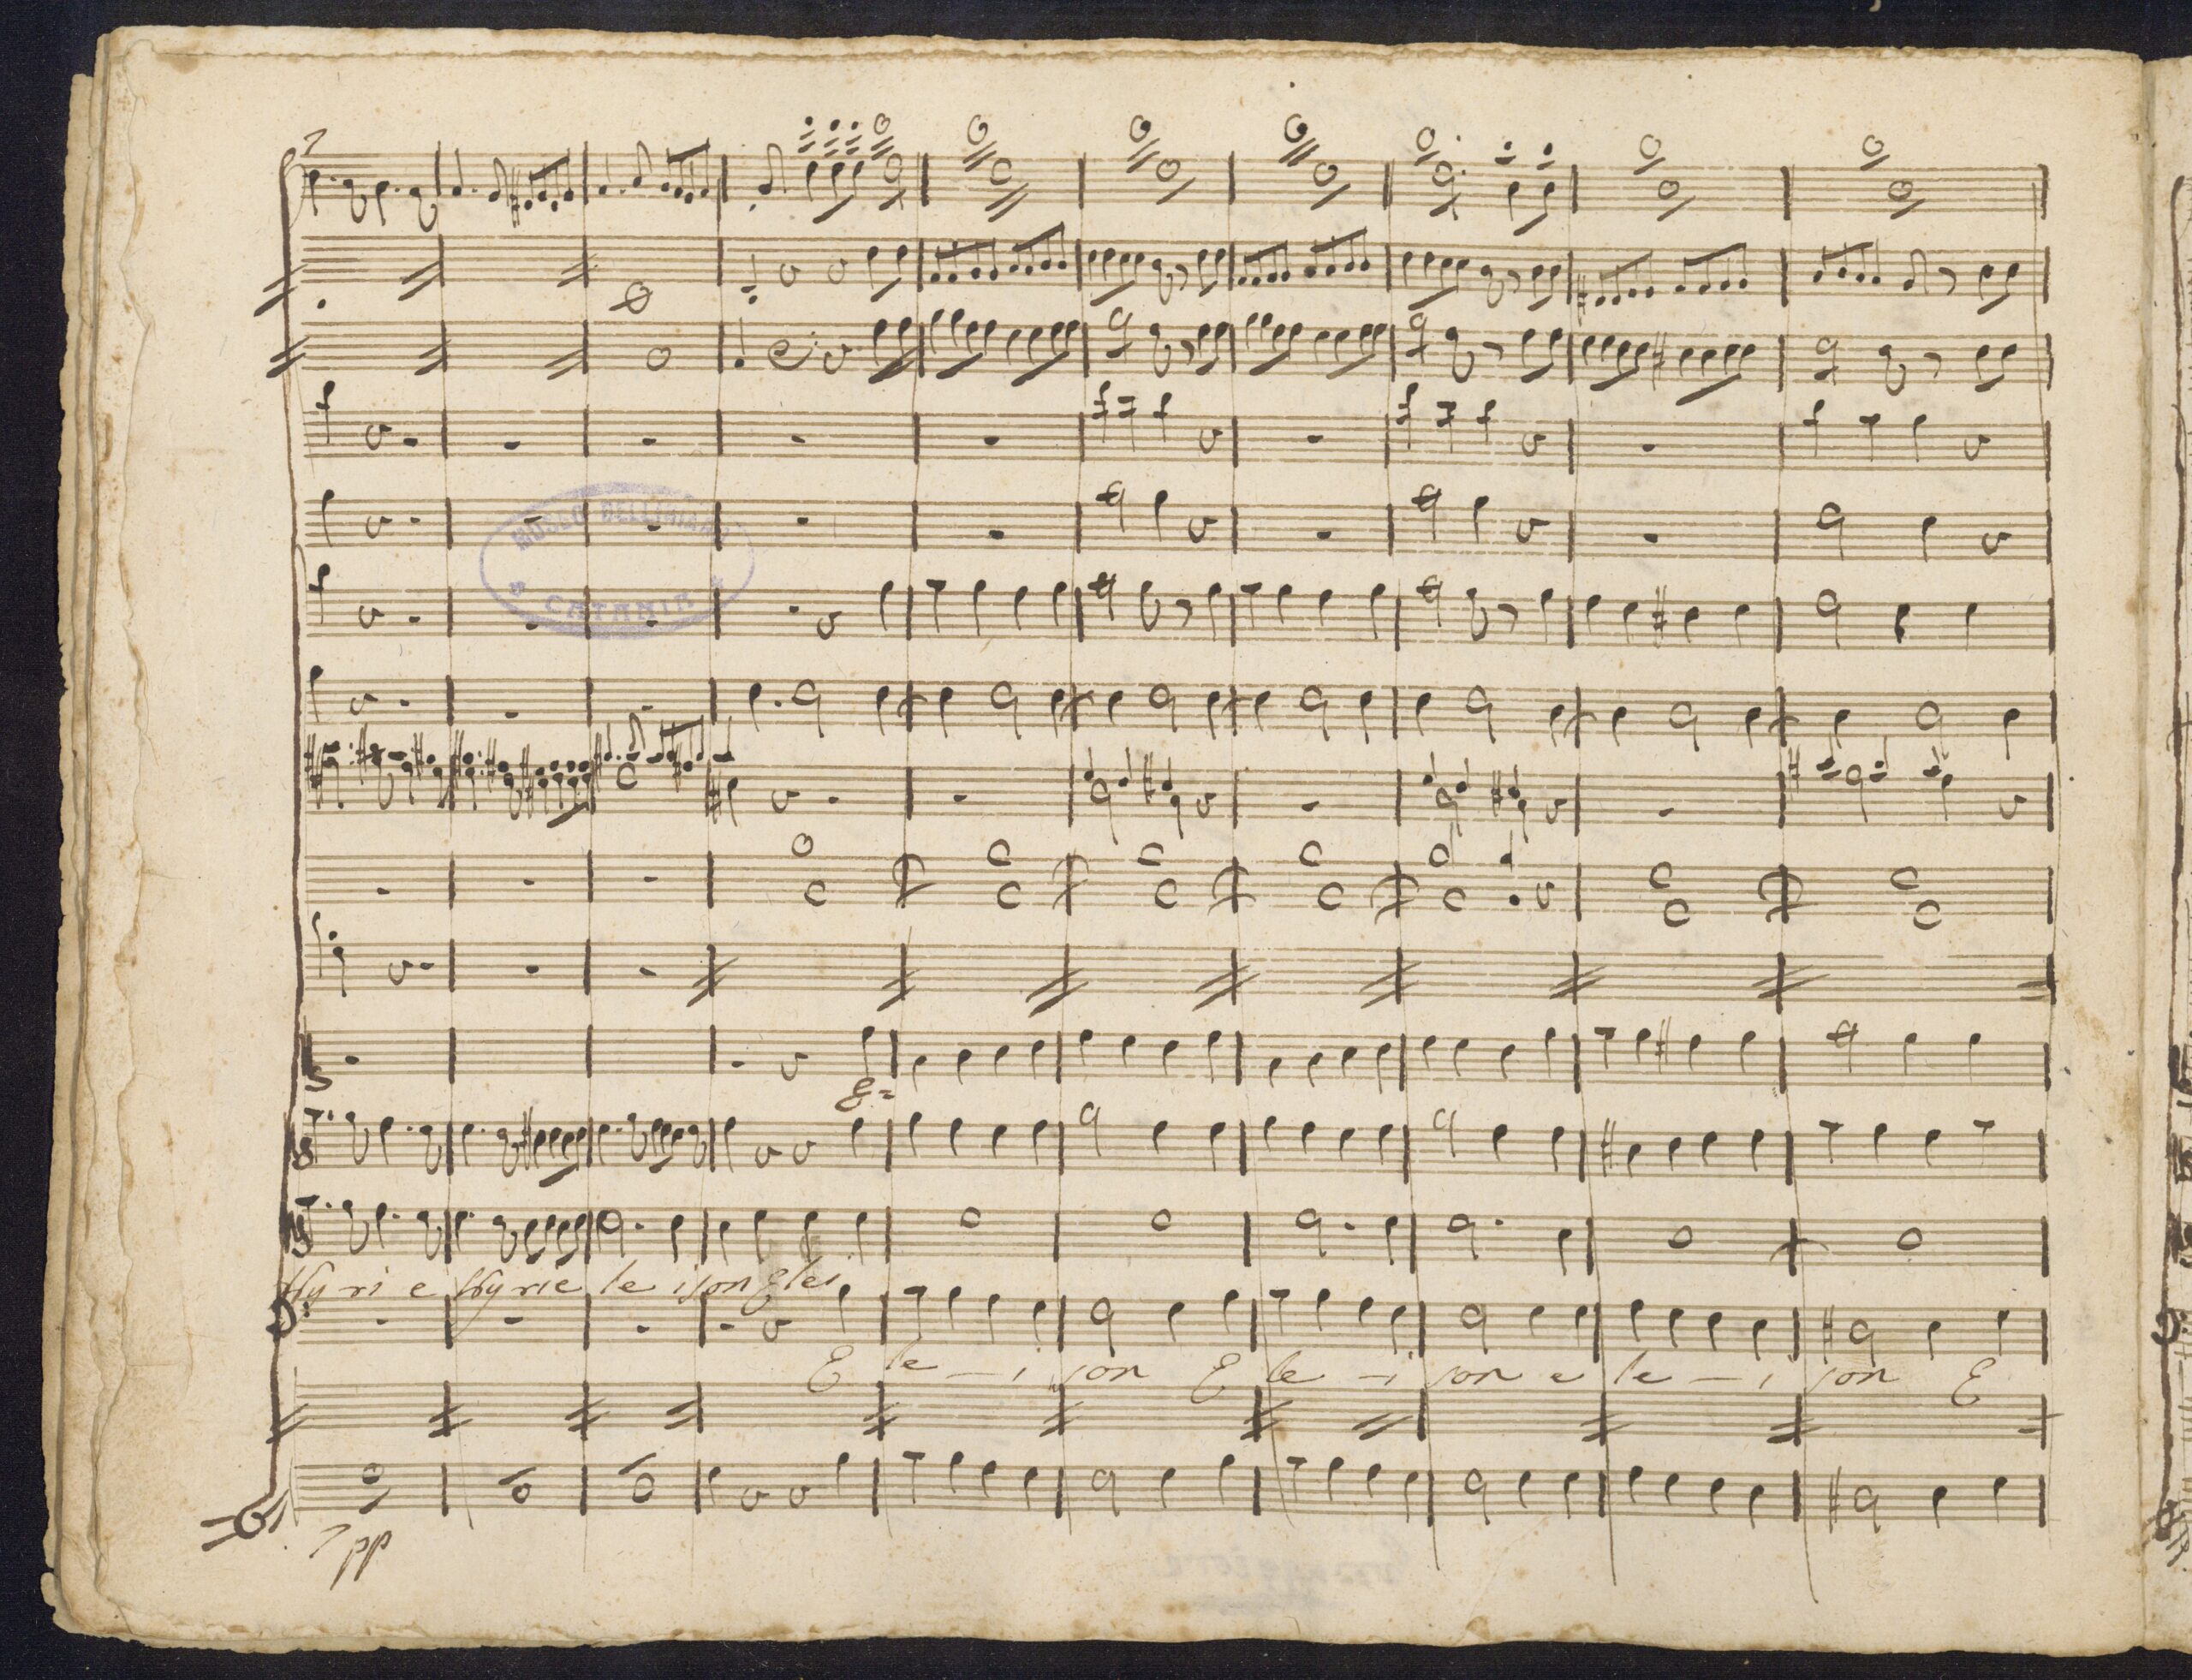 MUSEO BELLINIANO
CATANIA
Kyri e Kyrie le ison Elei
E le - i son E le - i son e le - i son E
pp